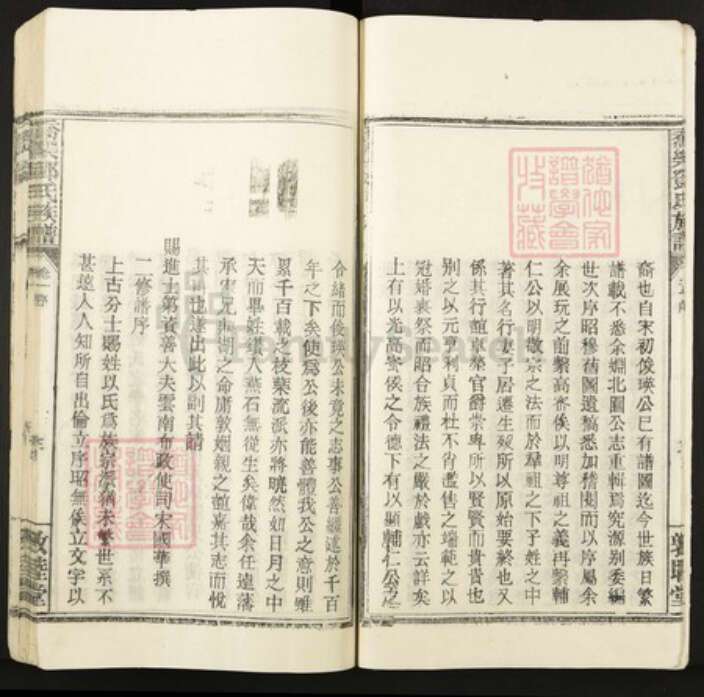 裔也自宋初俊瑛公已有譜圖迄今世族日繁
譜載不悉余淵北圖公志重輯焉究源別委編
世次序昭穆舊圖遺稿悉加稽閱而以序屬余
余展玩之前繫高密侯以明尊祖之義再繫輔
仁公以明敬宗之法而於羣祖之下子姓之中
著其名行妻子居遷生歿所以原始要終也又
係其行誼卓犖官爵崇卑所以賢賢而貴貴也
別之以元亨利貞而杜不肖濫售之端範之以
冠婚喪祭而昭合族禮法之嚴於戲亦云詳矣
上有以光高密侯之令德下有以顯輔仁公之
令緒而俊瑛公未竟之志事公善繼述於千百
年之下矣使爲公後亦能善體我公之意則雖
累千百載之枝葉流派亦將曉然如日月之中
天而畢姓 人燕石無從生矣偉哉余任遠藩
承 兄 湖之命庸敦姻親之誼嘉其志而悅
其 也遂出此以副其請
賜進士第資善大夫雲南布政使司宋國華撰
二修譜序
上古分士賜姓以氏爲族宗 稱未繁世系不
甚遠人人知所自出倫立序昭無俟立文字以
鄧氏族譜
卷一
序
敦睦堂
鄧氏族譜
敦睦堂
譜學會
收藏